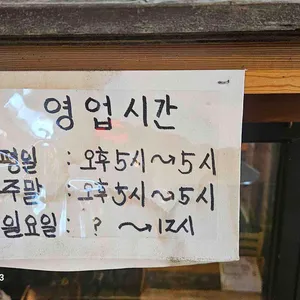 영업시간
평일 : 오후 5시~5시
주말 : 오후 5시~5시
일요일 : ? ~ 12시
3